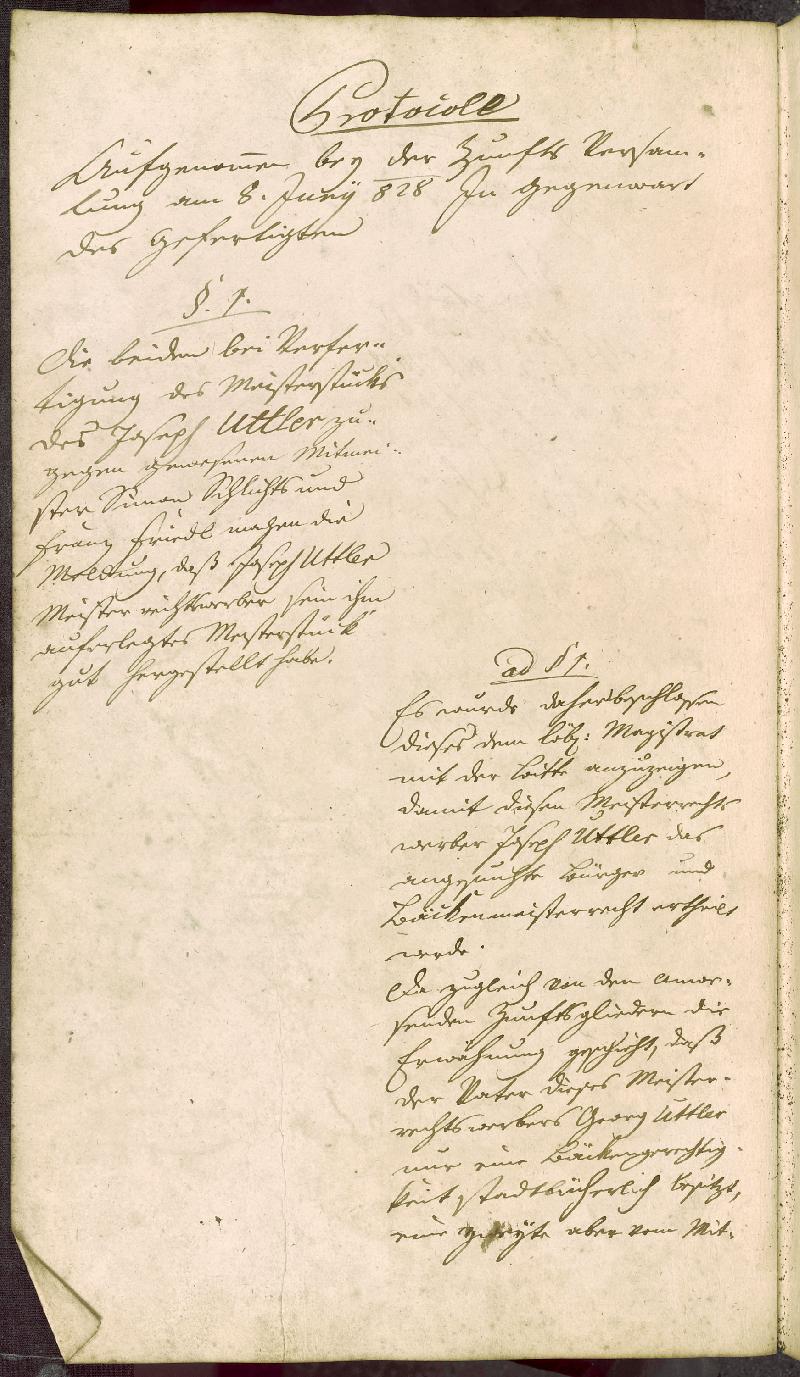 Protocoll
Aufgenommen bey der Zunfts Versam-
lung am 8. Juny 828 In Gegenwart
des Gefertigten
§. 1.
Die beiden bei Verfer-
tigung des Meisterstücks
des Joseph Uttler zu-
gegen gewesenen Mitmei-
ster Simon Schlichts und
Franz Friedl machen die
Meldung, daß Joseph Uttler
Meisterrechtswerber sein ihm
auferlegtes Meisterstück
gut hergestellt habe.
ad § 1.
Es wurde daher beschlossen
dieses dem löbl: Magistrat
mit der Bitte anzuzeigen,
damit diesen Meisterrechts
werber Joseph Uttler das
angesuchte Bürger und
Bäckenmeisterrecht ertheilt
werde.
Da zugleich von den anwe-
senden Zunftsgliedern die
Erwähnung geschieht, daß
der Vater dieses Meister-
rechtswerbers Georg Uttler
nur eine Bäckengerechtig-
keit stadtbücherlich besitzt,
eine zweyte aber vom Mit-